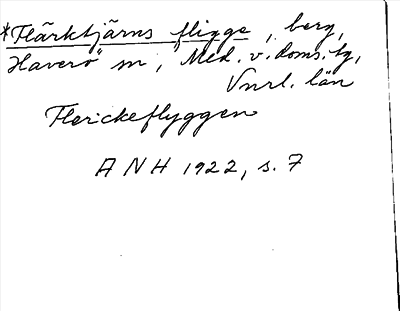 *Flärktjärns fligge, berg,
Haverö sn, Med. v. doms. tg,
Vnrl. län
Flerickeflyggen
ANH 1922, s. 7